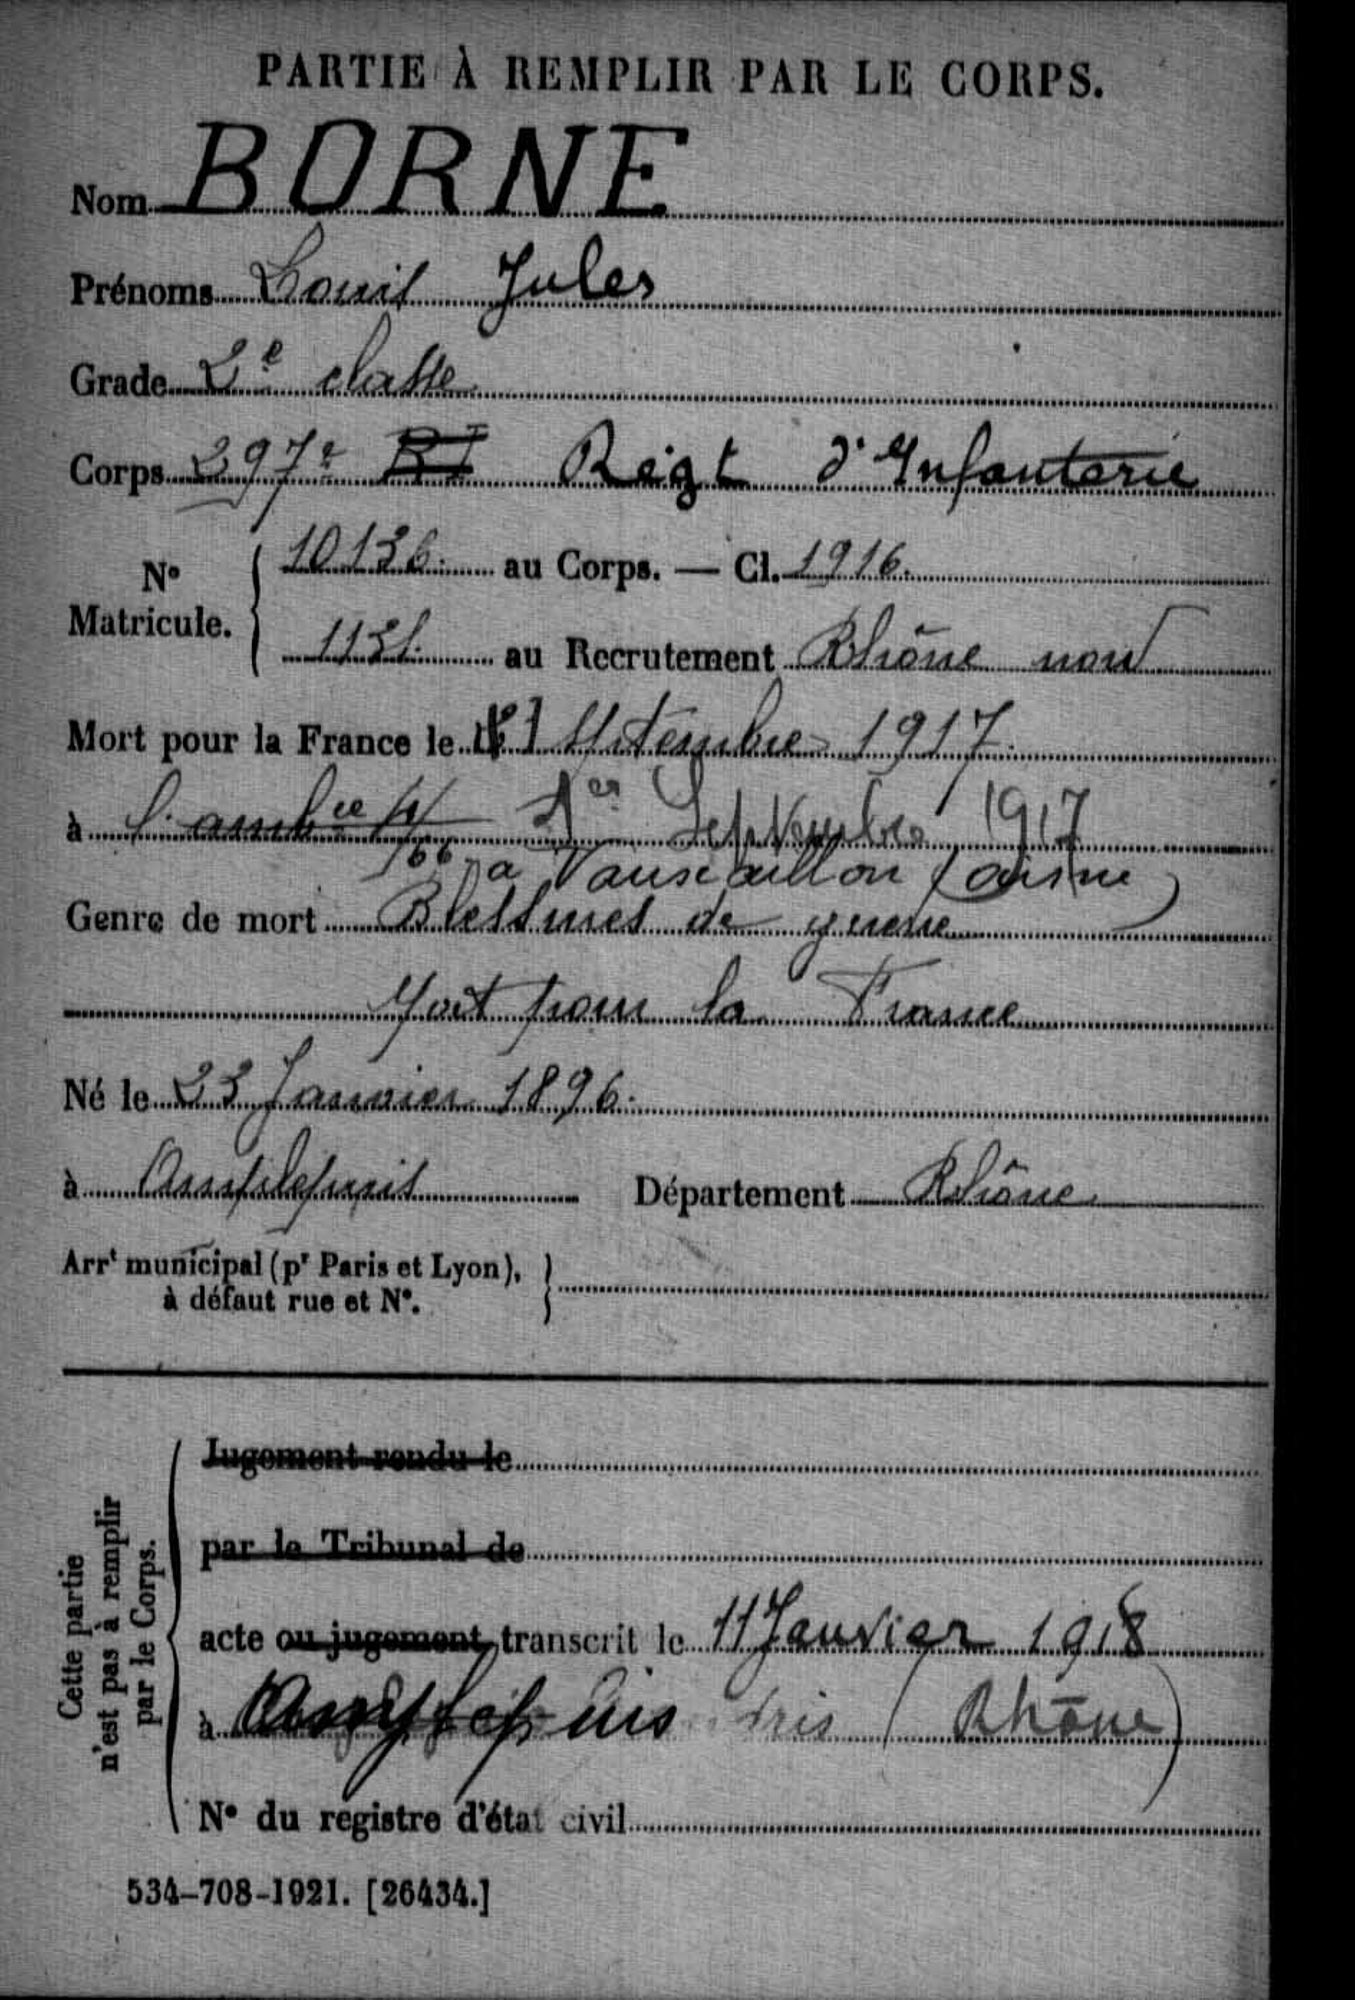 PARTIE À REMPLIR PAR LE CORPS.
Nom BORNE
Prénoms Louis Jules
Grade 2e classe
Corps 297e RI Régt d'Infanterie
No Matricule. 10136 au Corps. — Cl. 1916.
1131. au Recrutement Rhône nord
Mort pour la France le 1 Septembre 1917.
à l'ambce 1er Septembre 1917
à Vauxaillon (aisne)
Genre de mort Blessures de guerre
Mort pour la France
Né le 23 Janvier 1896.
à Amplepuis Département Rhône
Arrt municipal (pr Paris et Lyon),
à défaut rue et No.
Cette partie
n'est pas à remplir
par le Corps.
Jugement rendu le
par le Tribunal de
acte ou jugement transcrit le 11 Janvier 1918
à Amplepuis (Rhône)
No du registre d'état civil
534-708-1921. [26434.]